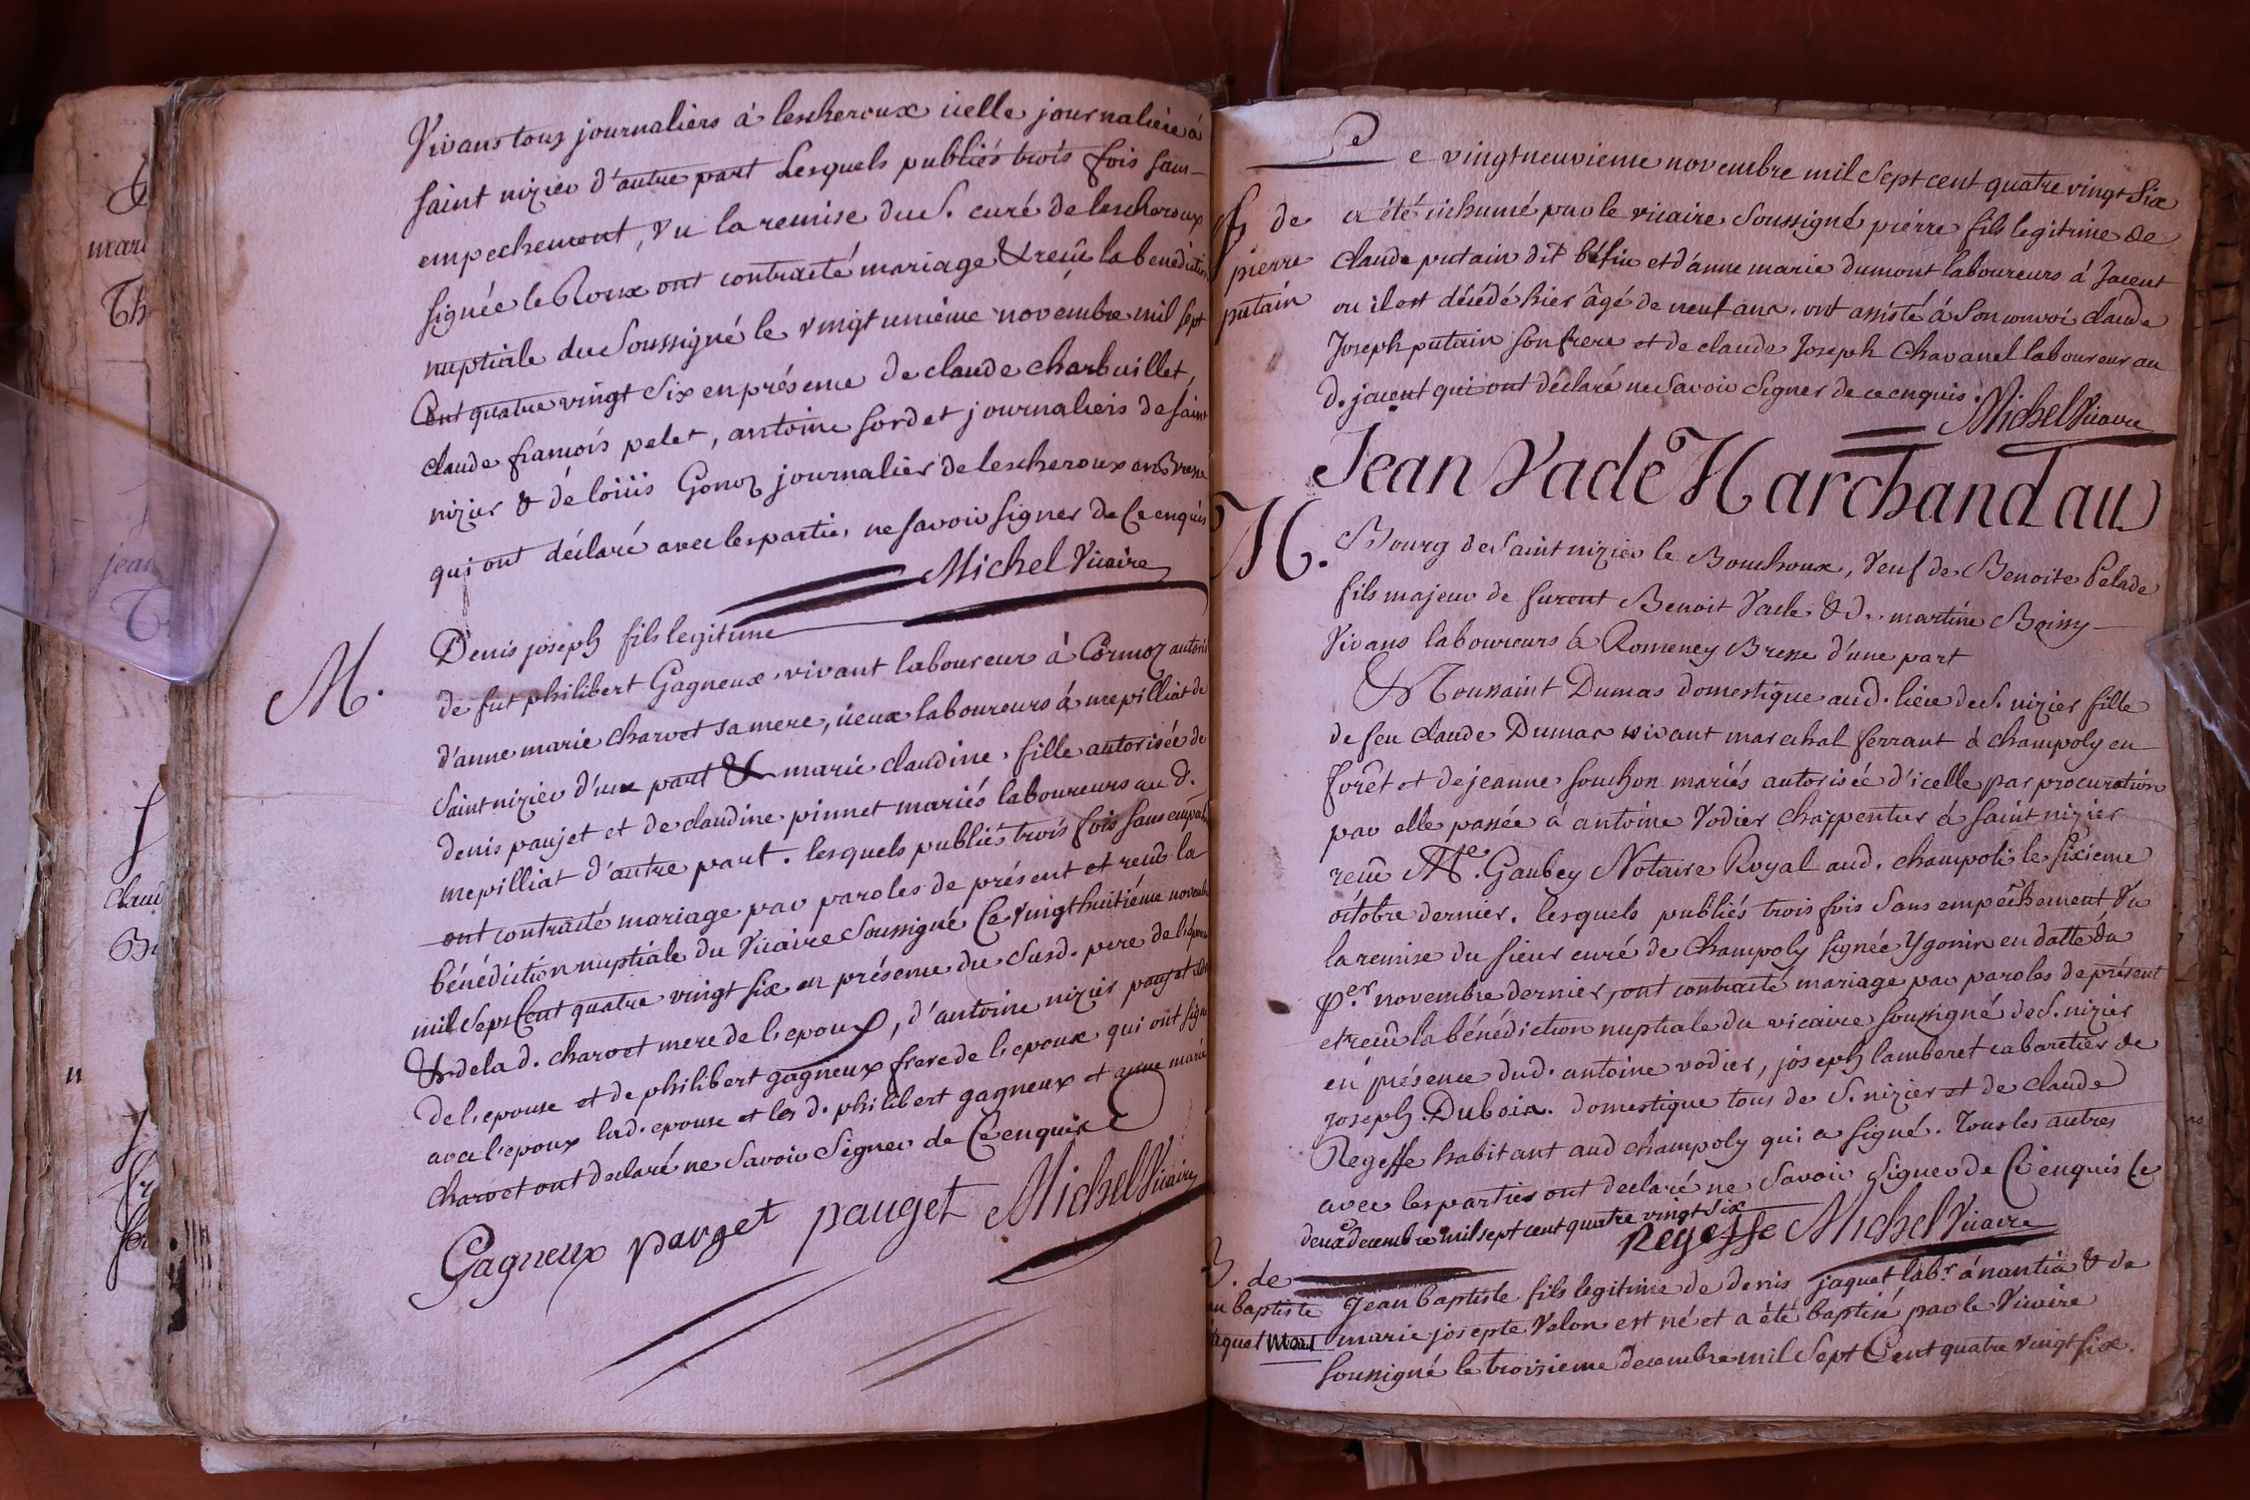 Vivans tous journaliers à lescheroux icelle journaliere à
saint nizier d'autre part Lesquels publiés trois fois sans
empechement, vu la remise du S. curé de lescheroux
signée le Roux ont contracté mariage & reçû la bénédiction
nuptiale du Soussigné le vingt unième novembre mil sept
Cent quatre vingt Six en présence de claude charbuillet,
claude françois pelet, antoine sordet journaliers de saint
nizier & de loüis Gonoz journalier de lescheroux en Bresse
qui ont déclaré avec les parties ne savoir signer de Ce enquis
Michel Vicaire
M.
Denis joseph fils legitime
de fut philibert Gagneux vivant laboureur à Cormoz autorisé
d'anne marie charvet sa mere, iceux laboureurs à mepilliat de
Saint nizier d'une part & marie claudine fille autorisée de
denis paujet et de claudine pinnet mariés laboureurs au d.
mepilliat d'autre part. lesquels publiés trois fois sans empech
ont contracté mariage par paroles de présent et reçu la
bénédiction nuptiale du Vicaire Soussigné Ce vingt huitiéme novembre
mil Sept Cent quatre vingt six en présence du susd. pere de l'épouse
& de la d. charvet mere de l'epoux, d'antoine nizier paujet
de l'epouse et de philibert gagneux frere de l'epoux qui ont signé
avec l'epoux lad. epouse et les d. philibert gagneux et anne marie
charvet ont declaré ne Savoir Signer de Ce enquis
Gagneux pauget pauget Michel Vicaire
Le vingt neuvieme novembre mil Sept cent quatre vingt Six
S de pierre putain
a été inhumé par le vicaire Soussigné pierre fils legitime de
claude putain dit béfin et d'anne marie dumont laboureurs à Jacent
ou il est décédé hier âgé de neuf ans. ont assisté à Son convoi claude
Joseph putain son frere et de claude Joseph Chavanel laboureur au
d. jacent qui ont déclaré ne Savoir Signer de ce enquis.
Michel Vicaire
Jean Vade Marchand au
M.
Bourg de Saint nizier le Bouchoux, Veuf de Benoite Pelade
fils majeur de furent Benoit Vade & d. martine Boissy
Vivans laboureurs à Romeney Bresse d'une part
& Toussaint Dumas domestique aud. lieu de S. nizier fille
de feu claude Dumas vivant marechal ferrant à champoly en
forêt et de jeanne souchon mariés autorisée d'icelle par procuration
par elle passée à antoine Vodier charpentier à saint nizier
reçue Me. Gaubey Notaire Royal aud. champoli le sixieme
octobre dernier. lesquels publiés trois fois Sans empêchement, Vu
la remise du sieur curé de Champoly signée Ygonin en datte du
per novembre dernier, ont contracté mariage par paroles de présent
et reçû la bénédiction nuptiale du vicaire soussigné de S. nizier
en présence dud. antoine vodier, joseph lamberet cabaretier de
joseph Dubois. domestique tous de S. nizier et de claude
Regeffe habitant aud champoly qui a signé. Tous les autres
avec les parties ont declaré ne Savoir Signer de Ce enquis Le
deux decembre mil sept cent quatre vingt six
Regeffe Michel Vicaire
B. de
an baptiste
aquet mort
Jean baptiste fils legitime de denis jaquet labr à nantia & de
marie josepte Velon est né et a été baptisé par le Vicaire
soussigné le troisieme decembre mil Sept Cent quatre vingt six.